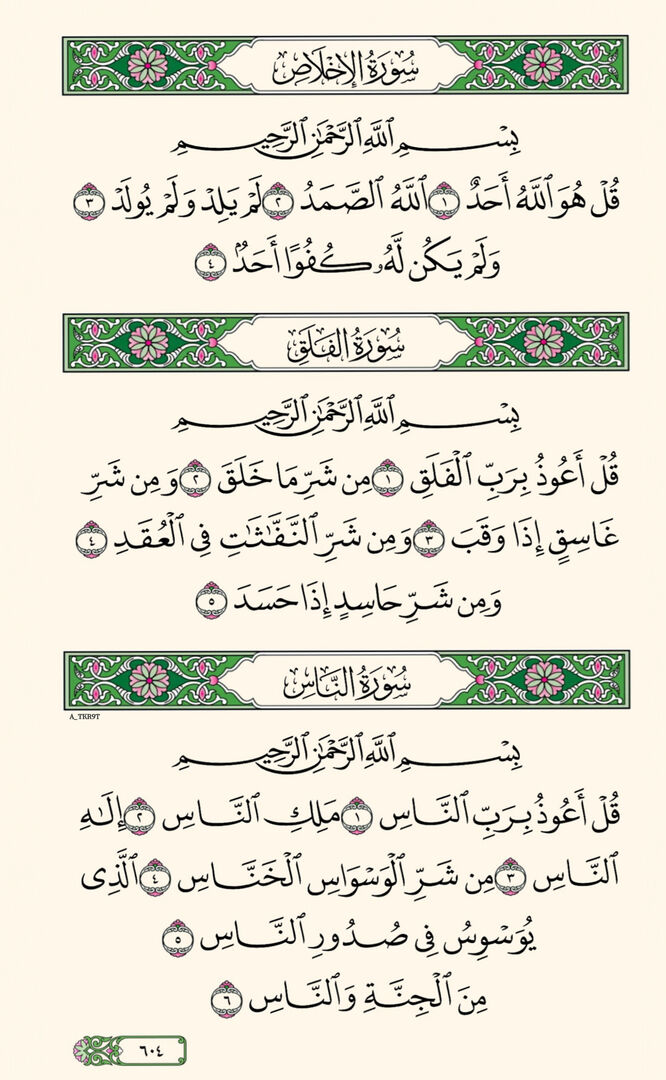 سُورَةُ الإِخْلَاصِ
بِسْمِ ٱللَّهِ ٱلرَّحْمَٰنِ ٱلرَّحِيمِ
قُلْ هُوَ ٱللَّهُ أَحَدٌ ١ ٱللَّهُ ٱلصَّمَدُ ٢ لَمْ يَلِدْ وَلَمْ يُولَدْ ٣
وَلَمْ يَكُن لَّهُۥ كُفُوًا أَحَدٌۢ ٤
سُورَةُ الفَلَقِ
بِسْمِ ٱللَّهِ ٱلرَّحْمَٰنِ ٱلرَّحِيمِ
قُلْ أَعُوذُ بِرَبِّ ٱلْفَلَقِ ١ مِن شَرِّ مَا خَلَقَ ٢ وَمِن شَرِّ
غَاسِقٍ إِذَا وَقَبَ ٣ وَمِن شَرِّ ٱلنَّفَّٰثَٰتِ فِى ٱلْعُقَدِ ٤
وَمِن شَرِّ حَاسِدٍ إِذَا حَسَدَ ٥
سُورَةُ النَّاسِ
A_TKR9T
بِسْمِ ٱللَّهِ ٱلرَّحْمَٰنِ ٱلرَّحِيمِ
قُلْ أَعُوذُ بِرَبِّ ٱلنَّاسِ ١ مَلِكِ ٱلنَّاسِ ٢ إِلَٰهِ
ٱلنَّاسِ ٣ مِن شَرِّ ٱلْوَسْوَاسِ ٱلْخَنَّاسِ ٤ ٱلَّذِى
يُوَسْوِسُ فِى صُدُورِ ٱلنَّاسِ ٥
مِنَ ٱلْجِنَّةِ وَٱلنَّاسِ ٦
٦٠٤